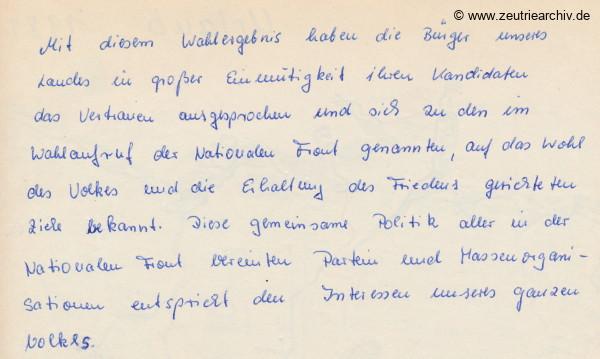 © www.zeutriearchiv.de
Mit diesem Wahlergebnis haben die Bürger unseres
Landes in großer Einmütigkeit ihren Kandidaten
das Vertrauen ausgesprochen und sich zu den im
Wahlaufruf der Nationalen Front genannten, auf das Wohl
des Volkes und die Erhaltung des Friedens gerichteten
Ziele bekannt. Diese gemeinsame Politik aller in der
Nationalen Front vereinten Partein und Massenorgani-
sationen entspricht den Interessen unseres ganzen
Volkes.